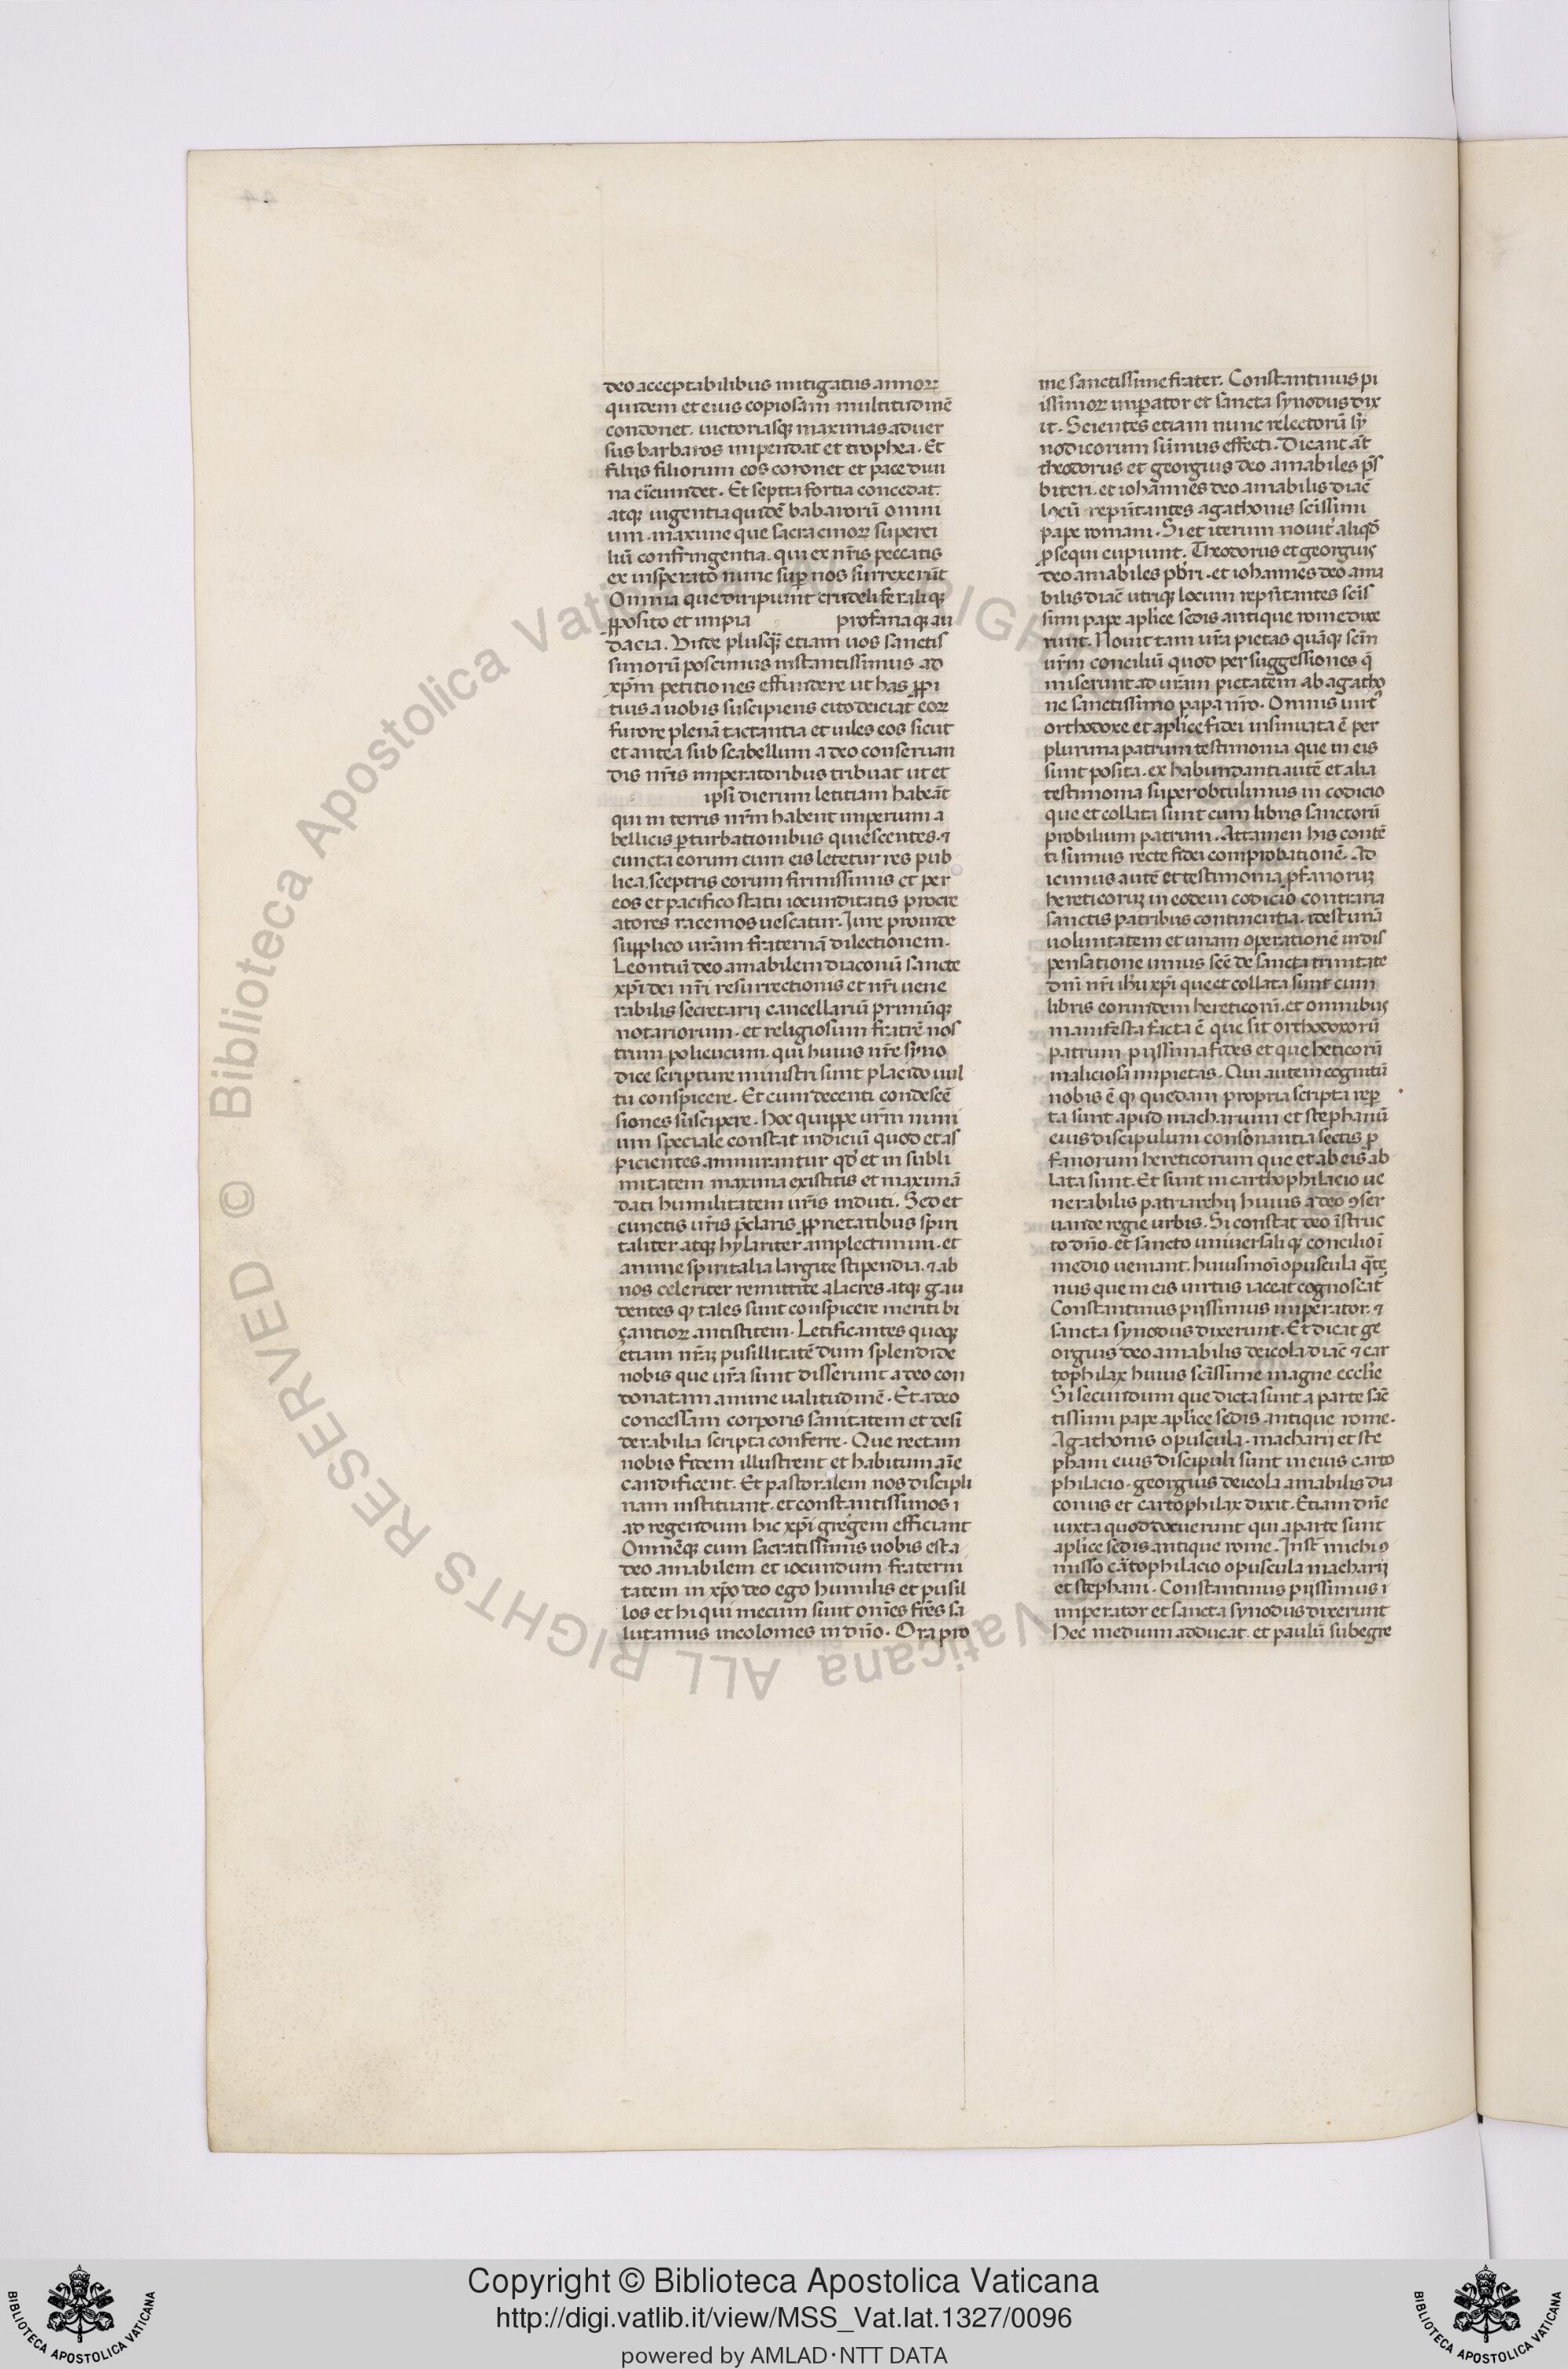 deo acceptabilibus mitigatus annoꝝ
quidem et eius copiosam multitudinē
condonet. uictoriasqꝫ maximas aduer
sus barbaros impendat et trophea. Et
filijs filiorum eos coronet et pace diui
na cīcumdet. Et septra fortia concedat.
atqꝫ uigentia quidē babarorū omni
um. maxime que sacracinoꝝ superci
liū confringentia. qui ex nr̄is peccatis
ex insperato nunc suꝑ nos surrexerūt
Omnia que diripiunt crudeli feraliqꝫ
ꝓposito et impia profanaqꝫ au
dacia. Vnde plusqꝫ etiam uos sanctis
simorū poscimus instantissimus ad
xp̄m petitiones effundere ut has ꝓpi
tius a uobis suscipiens cito deiciat eoꝝ
furore plenā iactantia et uiles eos sicut
et antea sub scabellum a deo conseruan
dis nr̄is imperatoribus tribuat ut et
ipsi dierum letitiam habeāt
qui in terris nr̄m habent imperium a
bellicis ꝑturbationibus quiescentes. ⁊
cuncta eorum cum eis letetur res pub
lica. sceptris eorum firmissimis et per
eos et pacifico statu iocunditatis procre
atores racemos uescatur. Iure proinde
supplico ur̄am fraternā dilectionem.
Leontiū deo amabilem diaconū sancte
xp̄i dei nr̄i resurrectionis et nr̄i uene
rabilis secretarij cancellariū primūqꝫ
notariorum. et religiosum fratrē nos
trum polieucum. qui huius nr̄e syno
dice scripture ministri sunt placido uul
tu conspicere. Et cum decenti condescē
siones suscipere. Hoc quippe ur̄m nimi
um speciale constat indiciū quod et as
picientes ammirantur qd̄ et in subli
mitatem maxima existitis et maximā
dati humilitatem ur̄is induti. Sed et
cunctis ur̄is p̄claris ꝓprietatibus spiri
taliter atqꝫ hylariter amplectimini. et
anime spiritalia largite stipendia. ⁊ ab
nos celeriter remittite alacres atqꝫ gau
dentes ꝙ tales sunt conspicere meriti bi
cantioꝝ antistitem. Letificantes quoqꝫ
etiam nr̄aꝫ pusillitatē dum splendide
nobis que ur̄a sunt disserunt a deo con
donatam anime ualitudinē. Et a deo
concessam corporis sanitatem et desi
derabilia scripta conferre. Que rectam
nobis fidem illustrent et habitum aīe
candificent. Et pastoralem nos discipli
nam instituant. et constantissimos ı
ad regendum hic xp̄i gregem efficiant
Omnēqꝫ cum sacratissimis uobis est a
deo amabilem et iocundum fraterni
tatem in xp̄o deo ego humilis et pusil
los et hi qui mecum sunt om̄es fr̄es sa
lutamus incolomes in dn̄o. Ora pro
me sanctissime frater. Constantinus pi
issimoꝝ imꝑator et sancta synodus dix
it. Scientes etiam nunc relectorū sy
nodicorum sum̄us effecti. Dicant āt
theodorus et georgius deo amabiles p̄s
biteri. et iohannes deo amabilis diac̄
locū repn̄tantes agathonis scissimi
pape romani. Si et iterum nouit̄ aliqd̄
ꝑsequi cupiunt. Theodorus et georgius
deo amabiles pb̄ri. et iohannes deo ama
bilis diac̄ utriqꝫ locum repn̄tantes scis̄
simi pape aplīce sedis antique rome dixe
runt. Nouit tam ur̄a pietas quāqꝫ scm̄
ur̄m conciliū quod per suggessiones q̄
miserunt ad ur̄am pietatem ab agatho
ne sanctissimo papa nr̄o. Omnis uirt̓
orthodoxe et aplīce fidei insinuata ē per
plurima patrum testimonia que in eis
sunt posita. ex habundanti autē et alia
testimonia superobtulimus in codicio
que et collata sunt cum libris sanctorū
probilium patrum. Attamen his contē
ti sumus recte fidei comprobationē. Ad
icimus autē et testimonia ꝓfanoruꝫ
hereticoruꝫ in eodem codicio contraria
sanctis patribus continentia. idest unā
uoluntatem et unam operationē in dis
pensatione unius sc̄e de sancta trinitate
dn̄i nr̄i ih̄u xp̄i que et collata sunt cum
libris eorundem hereticorū. et omnibus
manifesta facta ē que sit orthodoxorū
patrum pijssima fides et que heticorū
maliciosa impietas. Qui autem cognitū
nobis ē ꝙ quedam propria scripta reꝑ
ta sunt apud macharium et stephanū
eius discipulum consonantia sectis ꝓ
fanorum hereticorum que et ab eis ab
lata sunt. Et sunt in carthophilacio ue
nerabilis patriarchij huius a deo ꝯser
uande regie urbis. Si constat deo īstruc
to dn̄o. et sancto uniuersaliqꝫ concilio ī
medio ueniant. huiusmoī opuscula q̄te
nus que in eis uirtus iaceat cognoscat̄
Constantinus piissimus imperator. ⁊
sancta synodus dixerunt. Et dicat ge
orgius deo amabilis deicola diac̄ ⁊ car
tophilax huius scīssime magne ecclīe
Si secundum que dicta sunt a parte sāc
tissimi pape aplīce sedis antique rome.
Agathonis opuscula. macharij et ste
phani eius discipuli sunt in eius carto
philacio. georgius deicola amabilis dia
conus et cartophilax dixit. Etiam dn̄e
iuxta quod docuerunt qui a parte sunt
aplīce sedis antique rome. Inst̄ michi ꝯ
misso cātophilacio opuscula macharij
et stephani. Constantinus pijssimus ı
imperator et sancta synodus dixerunt
Hec medium adducat. et paulū subegre
Copyright © Biblioteca Apostolica Vaticana
http://digi.vatlib.it/view/MSS_Vat.lat.1327/0096
powered by AMLAD·NTT DATA
BIBLIOTECA APOSTOLICA VATICANA
BIBLIOTECA APOSTOLICA VATICANA
© Biblioteca Apostolica Vaticana ALL RIGHTS RESERVED